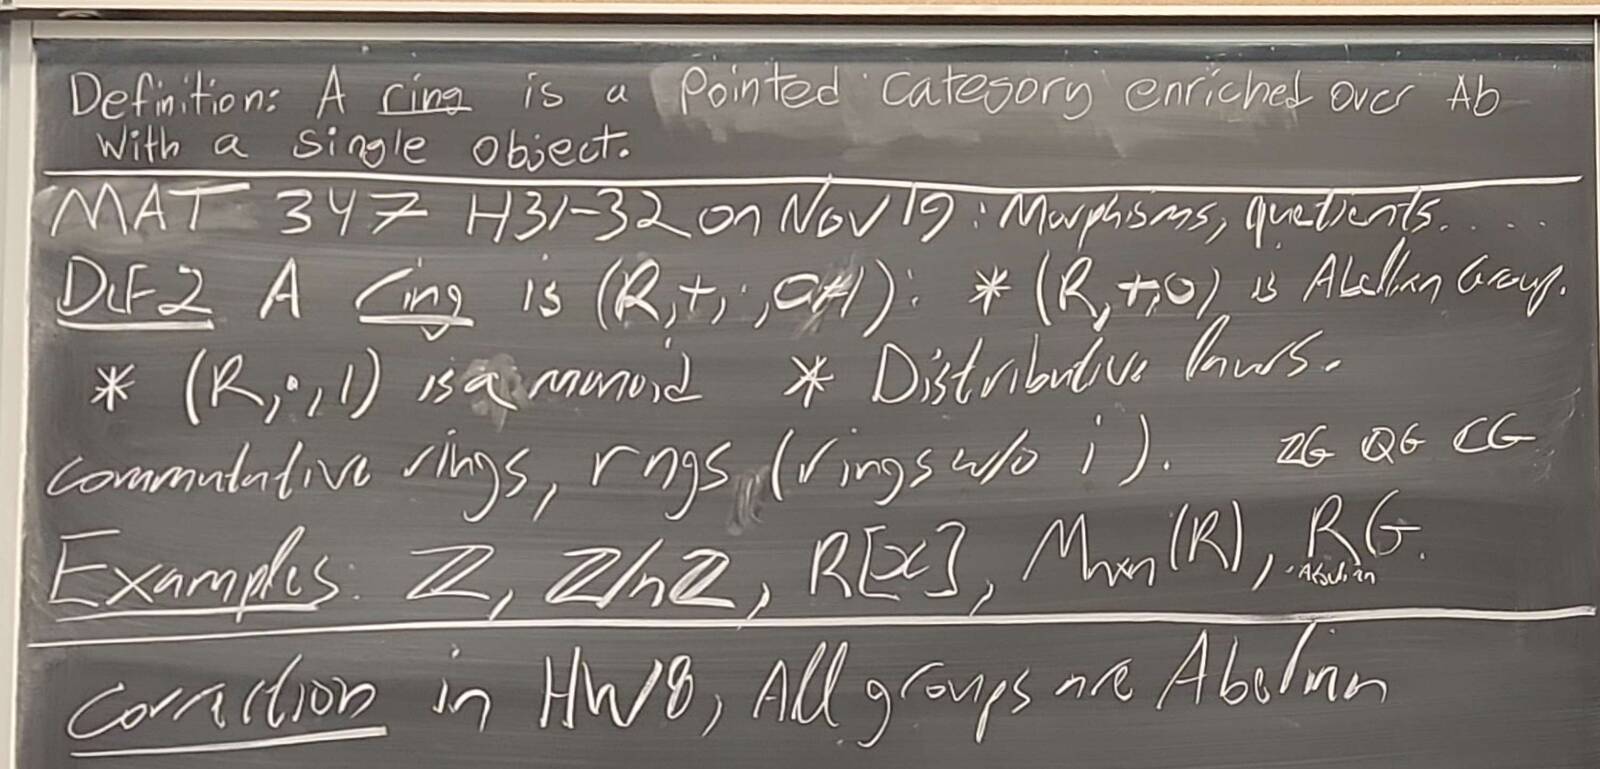 Definition: A ring is a Pointed Category enriched over Ab
with a single object.
MAT 347 H31-32 on Nov 19: Morphisms, quotients.....
Def 2 A ring is (R,+,·,0≠1): * (R,+,0) is Abelian Group.
* (R,·,1) is a monoid * Distributive laws.
commutative rings, rngs (rings w/o i). ZG QG CG
Examples: Z, Z/nZ, R[x], Mnxn(R), RG.
Abelian
Correction in HW8, All groups are Abelian